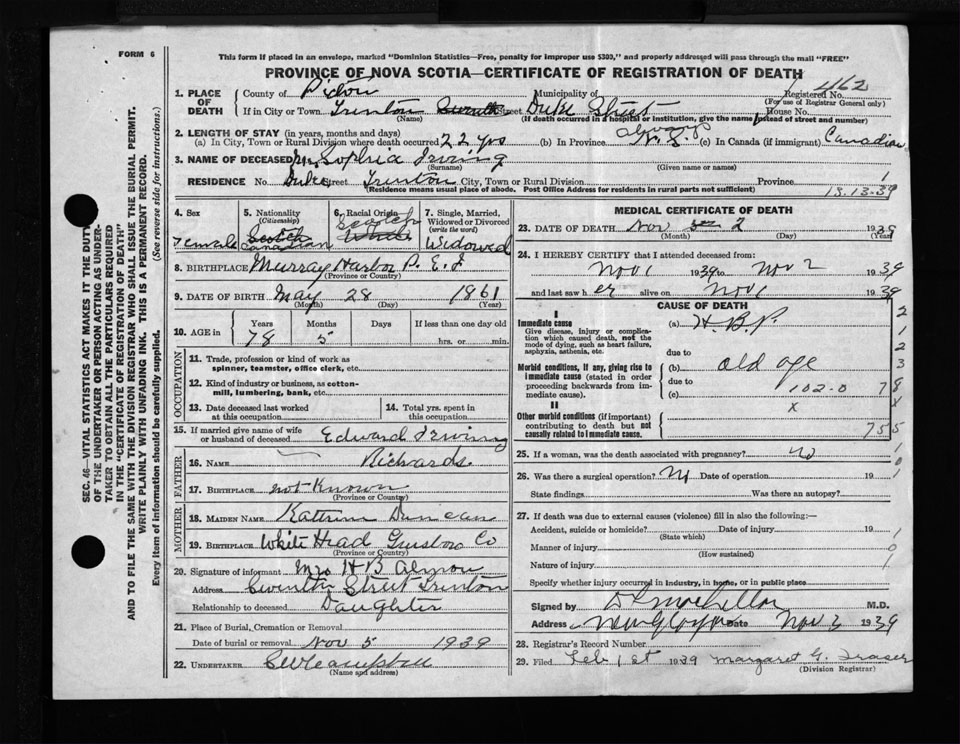 FORM 6
This form if placed in an envelope, marked "Dominion Statistics—Free, penalty for improper use $300," and properly addressed will pass through the mail "FREE"
PROVINCE OF NOVA SCOTIA—CERTIFICATE OF REGISTRATION OF DEATH
SEC. 46—VITAL STATISTICS ACT MAKES IT THE DUTY
OF THE UNDERTAKER OR PERSON ACTING AS UNDER-
TAKER TO OBTAIN ALL THE PARTICULARS REQUIRED
IN THE "CERTIFICATE OF REGISTRATION OF DEATH"
AND TO FILE THE SAME WITH THE DIVISION REGISTRAR WHO SHALL ISSUE THE BURIAL PERMIT.
WRITE PLAINLY WITH UNFADING INK. THIS IS A PERMANENT RECORD.
Every item of information should be carefully supplied. (See reverse side for instructions.)
1. PLACE OF DEATH County of Pictou Municipality of Registered No. 462
(For use of Registrar General only)
If in City or Town Trenton Street Duke Street House No.
(Name) (If death occurred in a hospital or institution, give the name instead of street and number)
2. LENGTH OF STAY (in years, months and days)
(a) In City, Town or Rural Division where death occurred 22 yrs (b) In Province N.S. (c) In Canada (if immigrant) Canadian
3. NAME OF DECEASED Sophia Irving
(Surname) (Given name or names)
RESIDENCE No. Duke Street Trenton City, Town or Rural Division Province
(Residence means usual place of abode. Post Office Address for residents in rural parts not sufficient) 13.13.39
4. Sex Female
5. Nationality (Citizenship) Scotch Canadian
6. Racial Origin Scotch
7. Single, Married, Widowed or Divorced (write the word) Widowed
8. BIRTHPLACE Murray Harbor P. E. I
(Province or Country)
9. DATE OF BIRTH May 28 1861
(Month) (Day) (Year)
10. AGE in Years Months Days If less than one day old
78 5 hrs. or min.
OCCUPATION
11. Trade, profession or kind of work as spinner, teamster, office clerk, etc.
12. Kind of industry or business, as cotton-mill, lumbering, bank, etc.
13. Date deceased last worked at this occupation
14. Total yrs. spent in this occupation
15. If married give name of wife or husband of deceased Edward Irving
FATHER
16. NAME Richards
17. BIRTHPLACE not Known
(Province or Country)
MOTHER
18. MAIDEN NAME Duncan
19. BIRTHPLACE White Head Co
(Province or Country)
20. Signature of informant Mrs H B
Address Street Trenton
Relationship to deceased Daughter
21. Place of Burial, Cremation or Removal
Date of burial or removal Nov 5 1939
22. UNDERTAKER C W Campbell
(Name and address)
MEDICAL CERTIFICATE OF DEATH
23. DATE OF DEATH Nov 2 1939
(Month) (Day) (Year)
24. I HEREBY CERTIFY that I attended deceased from:
Nov 1 1939 to Nov 2 1939
and last saw h er alive on Nov 1 1939
CAUSE OF DEATH
I
Immediate cause (a) H. B. P.
Give disease, injury or complication which caused death, not the mode of dying, such as heart failure, asphyxia, asthenia, etc.
due to
Morbid conditions, if any, giving rise to immediate cause (stated in order proceeding backwards from immediate cause). (b) old age
due to
(c) 102.0
II
Other morbid conditions (if important) contributing to death but not causally related to immediate cause. x
25. If a woman, was the death associated with pregnancy? no
26. Was there a surgical operation? No Date of operation 19
State findings Was there an autopsy?
27. If death was due to external causes (violence) fill in also the following:—
Accident, suicide or homicide? Date of injury 19
(State which)
Manner of injury
(How sustained)
Nature of injury
Specify whether injury occurred in industry, in home, or in public place
Signed by M.D.
Address New Glasgow Date Nov 3 1939
28. Registrar's Record Number
29. Filed Feb 1st 1939 Margaret G. Fraser
(Division Registrar)